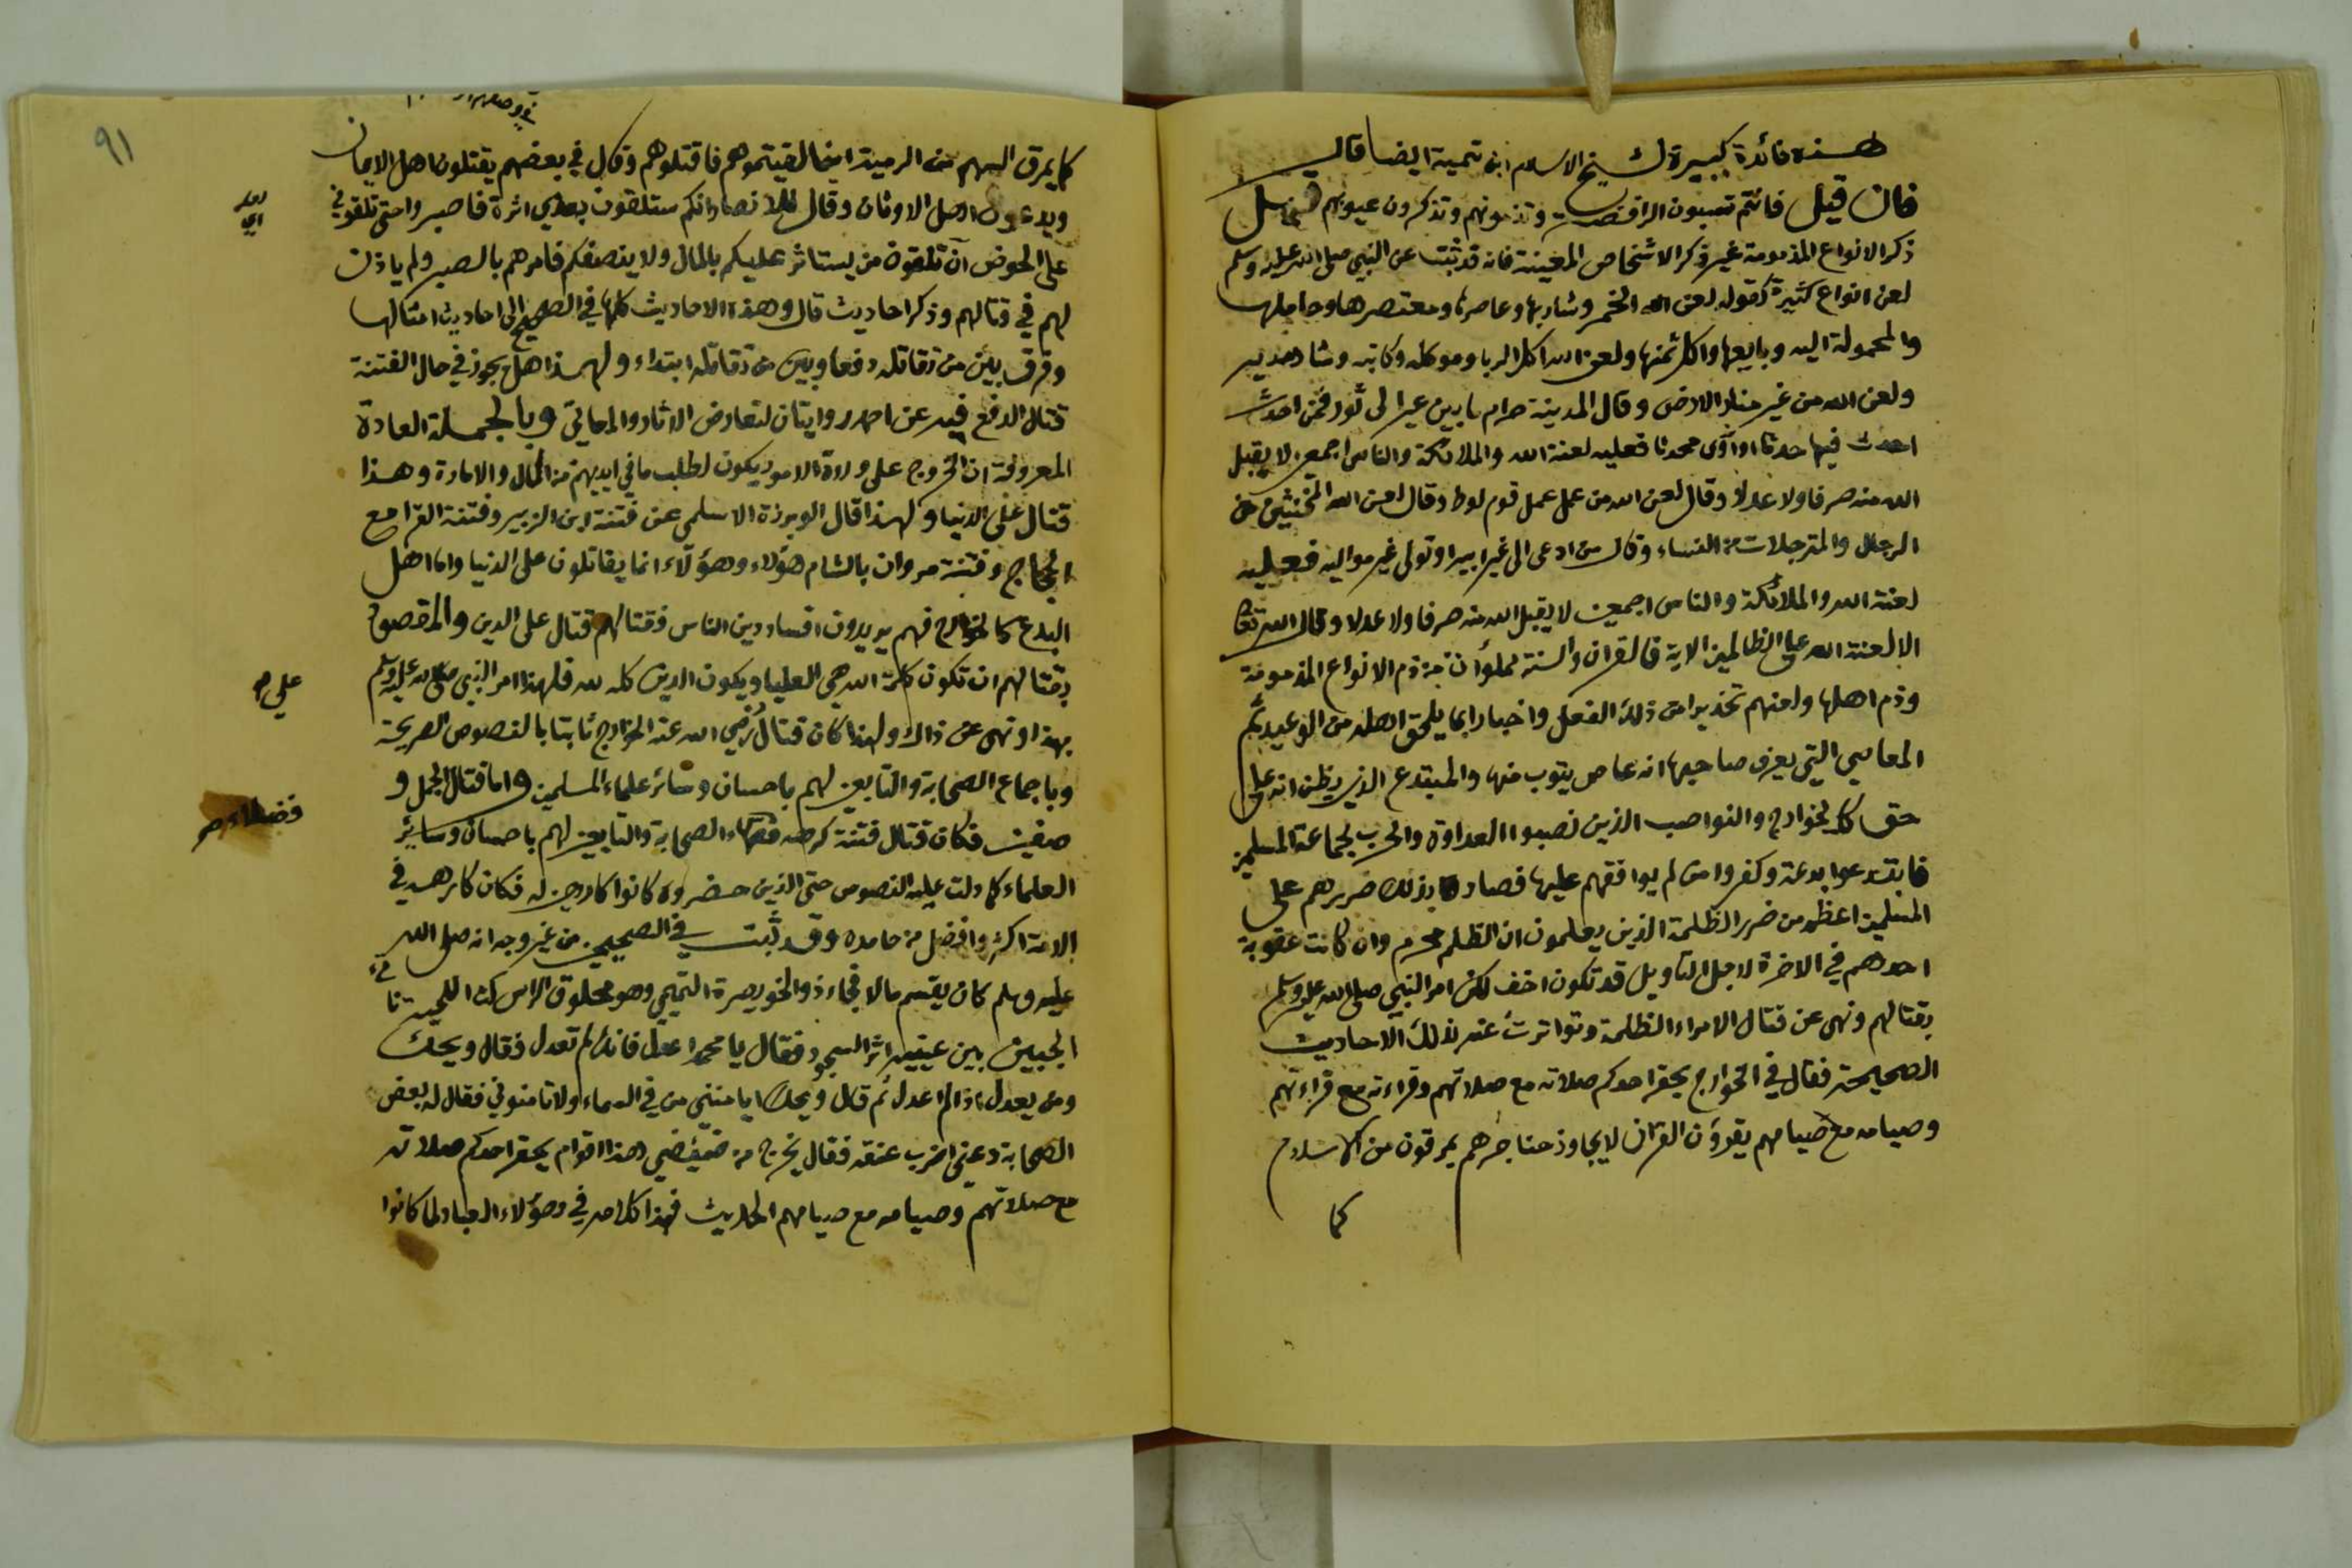 هذه فائدة كبيرة لشيخ الاسلام ابن تيمية ايضا قال
فان قيل فانتم تسبون الرافضة وتذمونهم وتذكرون عيوبهم قيل
ذكر الانواع المذمومة غير ذكر الاشخاص المعينة فانه قد ثبت عن النبي صلى الله عليه وسلم
لعن انواع كثيرة كقوله لعن الله الخمر وشاربها وعاصرها ومعتصرها وحاملها
والمحمولة اليه وبايعها واكل ثمنها ولعن الله اكل الربا وموكله وكاتبه وشاهديه
ولعن الله من غير منار الارض وقال المدينة حرام ما بين عير الى ثور فمن احدث
احدث فيها حدثا او آوى محدثا فعليه لعنة الله والملائكة والناس اجمعين لا يقبل
الله منه صرفا ولا عدلا وقال لعن الله من عمل عمل قوم لوط وقال لعن الله المخنثين من
الرجال والمترجلات من النساء وقال من ادعى الى غير ابيه او تولى غير مواليه فعليه
لعنة الله والملائكة والناس اجمعين لا يقبل الله منه صرفا ولا عدلا وقال الله تعالى
الا لعنة الله على الظالمين الاية فالقران والسنة مملؤان من ذم الانواع المذمومة
وذم اهلها ولعنهم تحذيرا من ذلك الفعل واخبارا بما يلحق اهله من الوعيد ثم
المعاصي التي يعرف صاحبها انه عاص يتوب منها والمبتدع الذي يظن انه على
حق كالخوارج والنواصب الذين نصبوا العداوة والحرب لجماعة المسلمين
فابتدعوا بدعة وكفروا من لم يوافقهم عليها فصار بذلك ضررهم على
المسلمين اعظم من ضرر الظلمة الذين يعلمون ان الظلم محرم وان كانت عقوبة
احدهم في الاخرة لاجل التاويل قد تكون اخف لكن امر النبي صلى الله عليه وسلم
بقتالهم ونهى عن قتال الامراء الظلمة وتواترت عنه بذلك الاحاديث
الصحيحة فقال في الخوارج يحقر احدكم صلاته مع صلاتهم وقراءته مع قراءتهم
وصيامه مع صيامهم يقرؤن القران لا يجاوز حناجرهم يمرقون من الاسلام
كما
٩١
كما يمرق السهم من الرمية اينما لقيتموهم فاقتلوهم وقال في بعضهم يقتلون اهل الايمان
ويدعون اهل الاوثان وقال للانصار انكم ستلقون بعدي اثرة فاصبروا حتى تلقوني
على الحوض اي تلقون من يستاثر عليكم بالمال ولا ينصفكم فامرهم بالصبر ولم ياذن
لهم في قتالهم وذكر احاديث قال وهذه الاحاديث كلها في الصحيح الى احاديث امثالها
وفرق بين من تقاتله دفعا وبين من تقاتله ابتداء ولهذا هل يجوز في حال الفتنة
قتال الدفع فيه عن احمد روايتان لتعارض الاثار والمعاني وبالجملة العادة
المعروفة ان الخروج على ولاة الامور يكون لطلب ما في ايديهم من المال والامارة وهذا
قتال على الدنيا ولهذا قال ابو برزة الاسلمي عن فتنة ابن الزبير وفتنة القرا مع
الحجاج وفتنة مروان بالشام هؤلاء وهؤلاء انما يقاتلون على الدنيا واما اهل
البدع كالخوارج فهم يريدون افساد دين الناس فقتالهم قتال على الدين والمقصود
بقتالهم ان تكون كلمة الله هي العليا ويكون الدين كله لله فلهذا امر النبي صلى الله عليه وسلم
بهذا ونهى عن ذاك ولهذا كان قتال رضي الله عنه الخوارج ثابتا بالنصوص الصريحة
علي صح
وباجماع الصحابة والتابعين لهم باحسان وسائر علماء المسلمين واما قتال الجمل و
صفين فكان قتال فتنة كرهه فضلاء الصحابة والتابعين لهم باحسان وسائر
فضلاء صح
العلماء كما دلت عليه النصوص حتى الذين حضروه كانوا كارهين له فكان كارهه في
الامة اكثر وافضل من حامده وقد ثبت في الصحيحين من غير وجه انه صلى الله
عليه وسلم كان يقسم مالا فجاء ذو الخويصرة التميمي وهو محلوق الراس كث اللحية ناتئ
الجبين بين عينيه اثر السجود فقال يا محمد اعدل فانك لم تعدل فقال ويحك
ومن يعدل اذا لم اعدل ثم قال ويحك ايامنني من في السماء ولا تامنوني فقال له بعض
الصحابة دعني اضرب عنقه فقال يخرج من ضئضئ هذا اقوام يحقر احدكم صلاته
مع صلاتهم وصيامه مع صيامهم الحديث فهذا كلامه في هؤلاء العباد لما كانوا